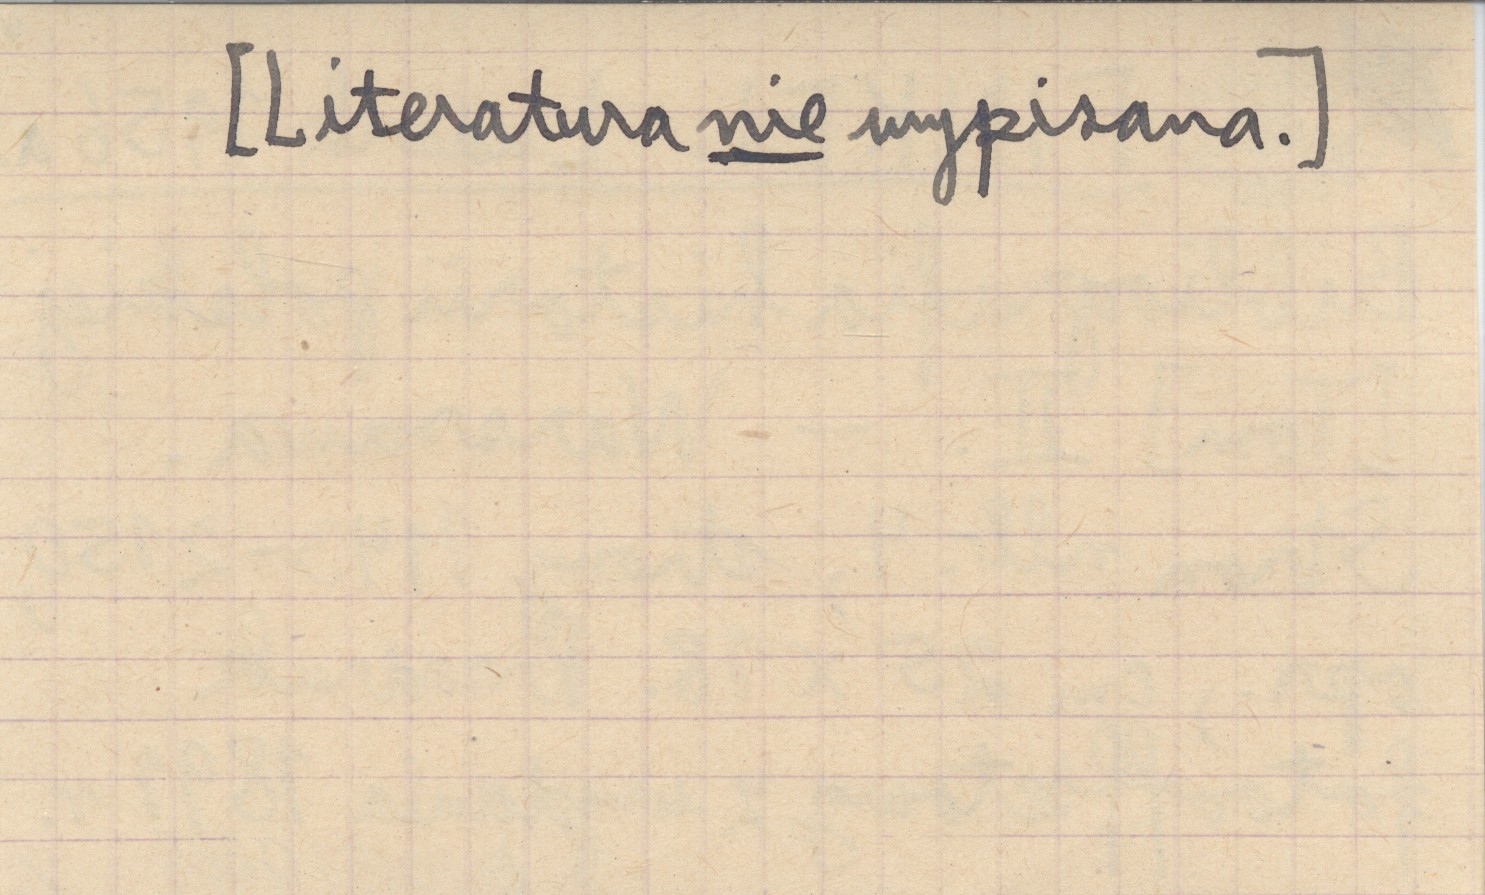 [Literatura nie wypisana.]